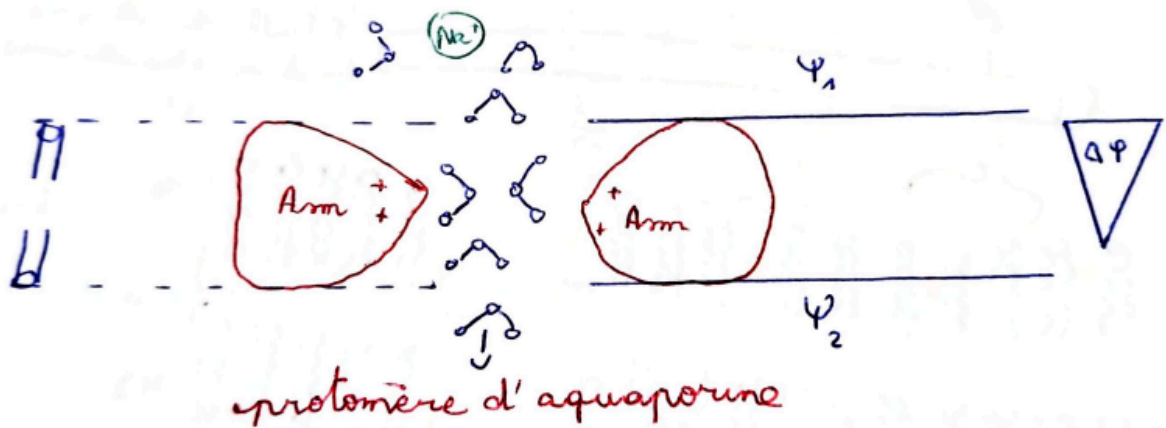 Na⁺
Ψ₁
+
+
Asn
+
+
Asn
Δφ
Ψ₂
protomère d'aquaporine